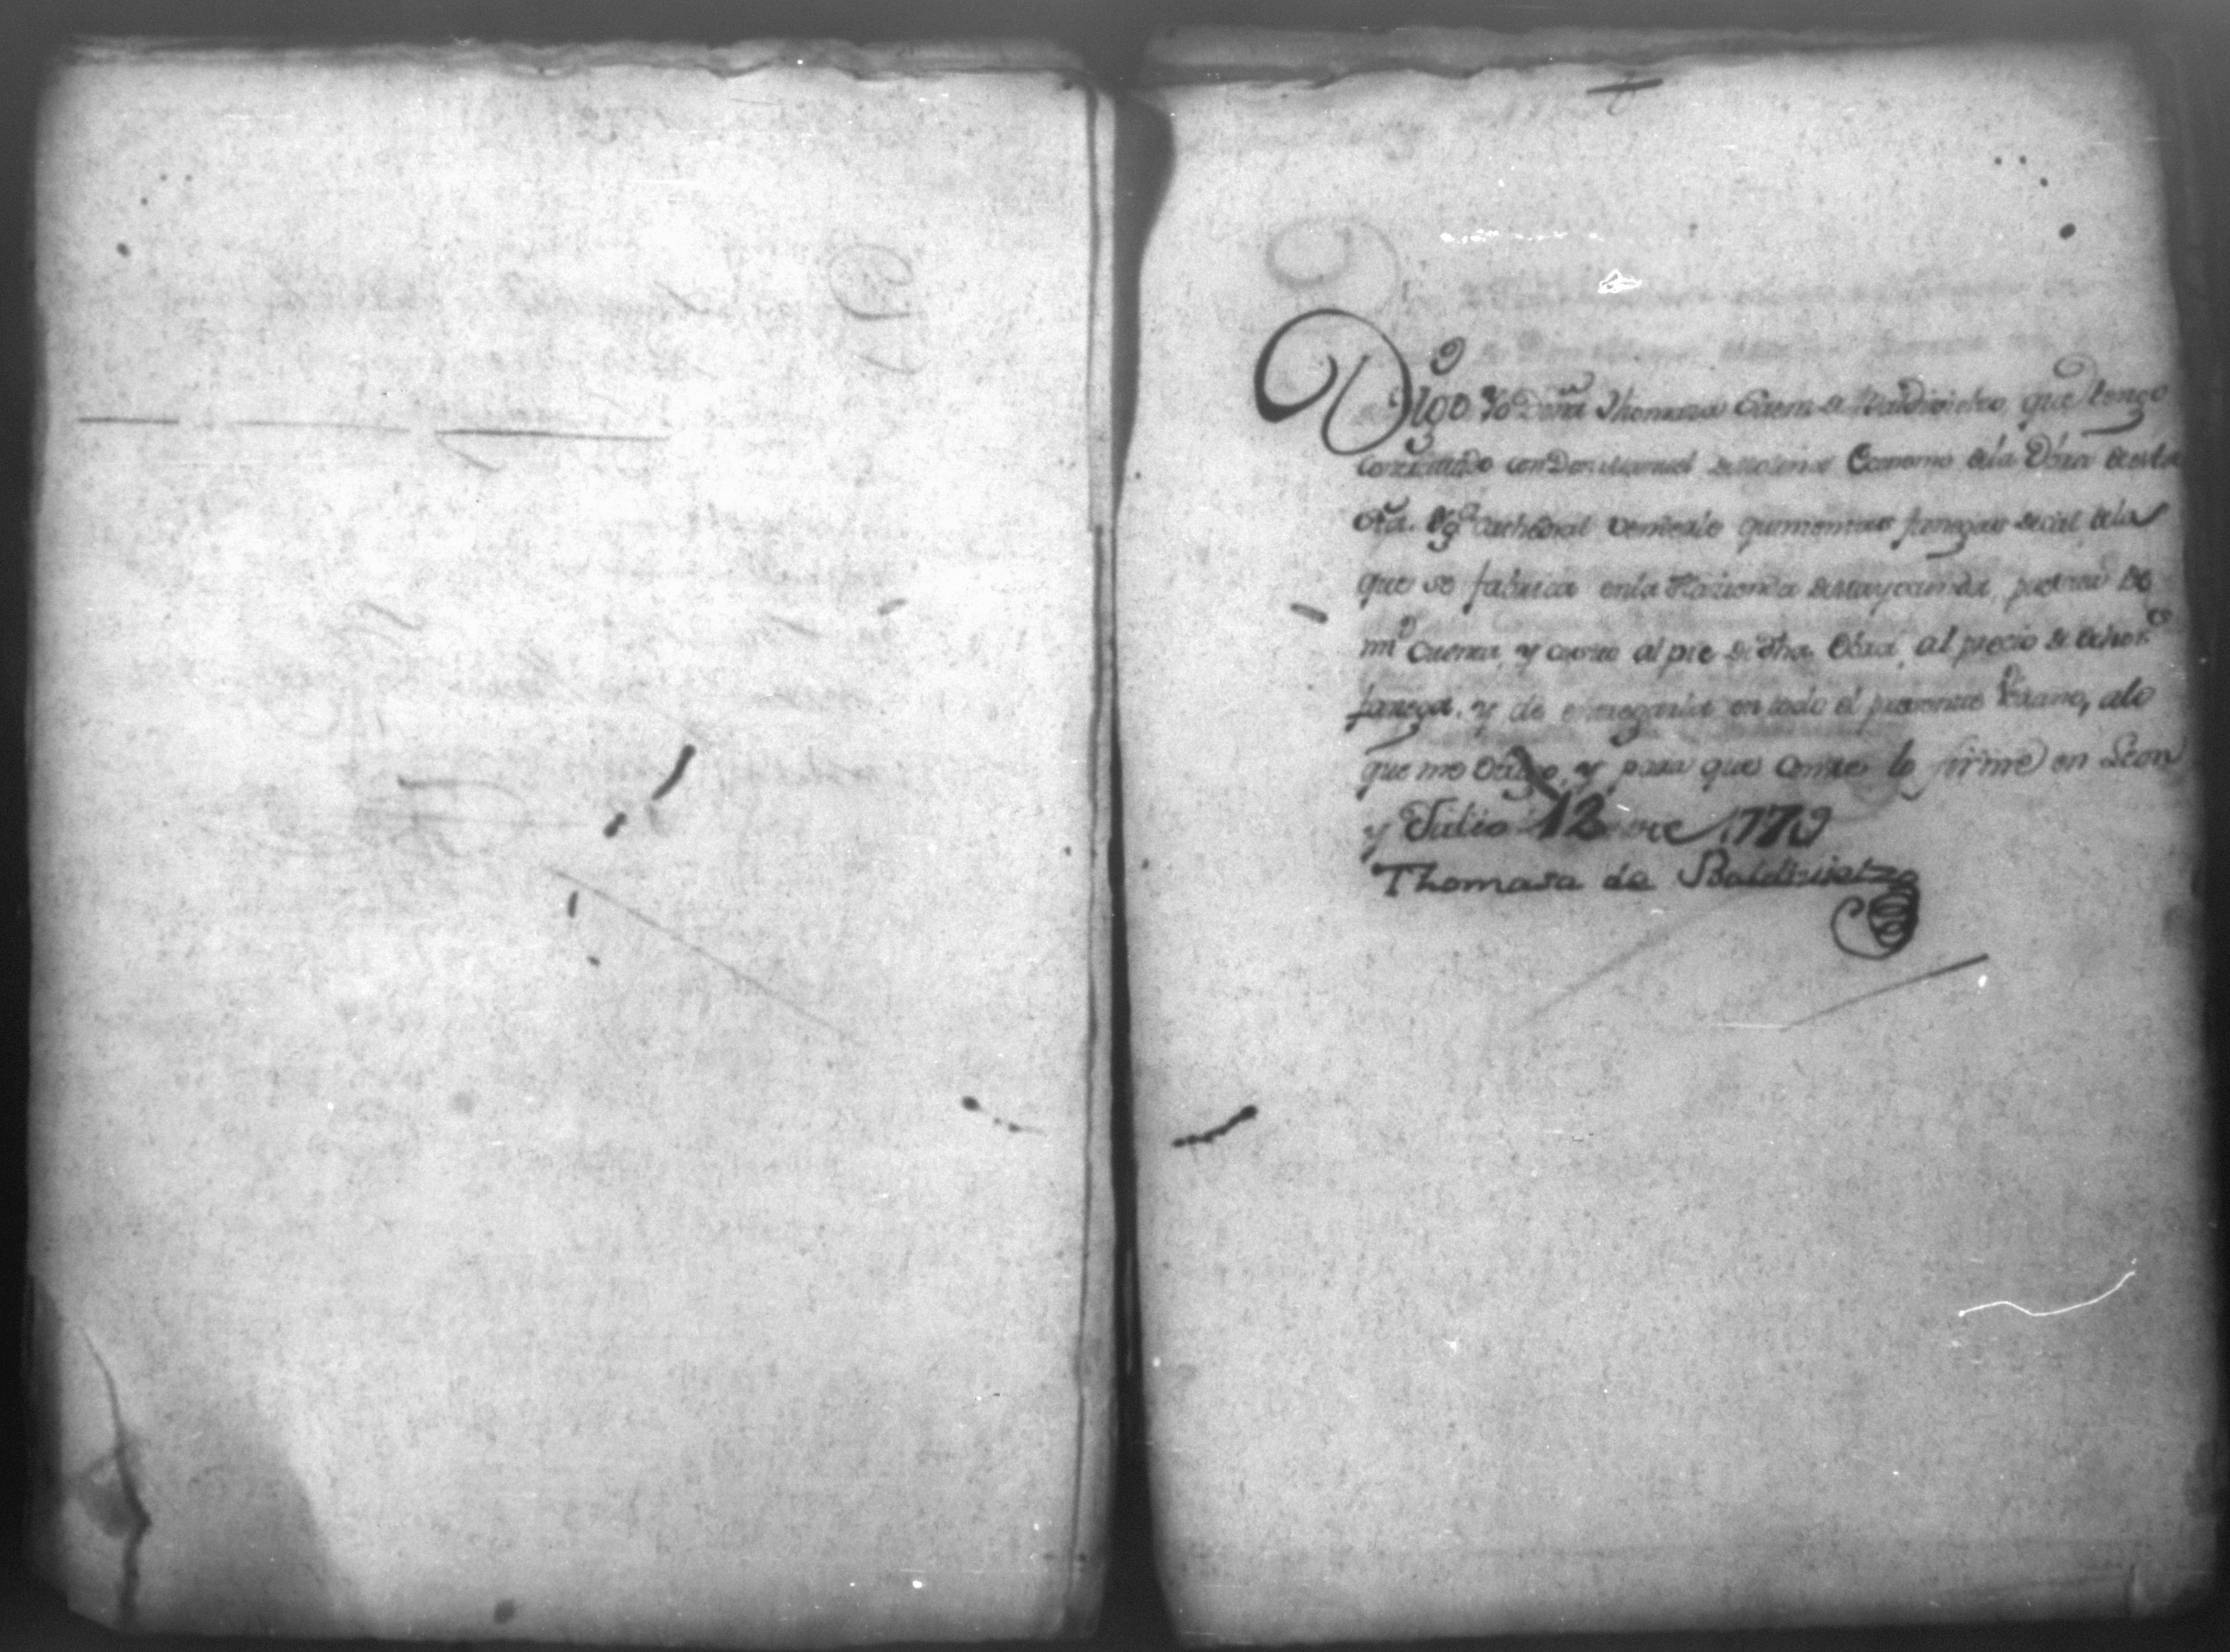 Digo Yo Doña Thomasa de Valdivielso, que tengo
contratado con Don Manuel de Molina de la Obra de esta
Sta. Yga. Cathedral venderle quinientas fanegas de cal de la
que se fabrica en la Hazienda de puestas de
mi cuenta, y costo al pie de dha Obra, al precio de
fanega, y de entregarla en todo el presente Verano, a lo
que me obligo, y para que conste lo firmé en Leon
y Julio 12 de 1779
Thomasa de Baldivielzo